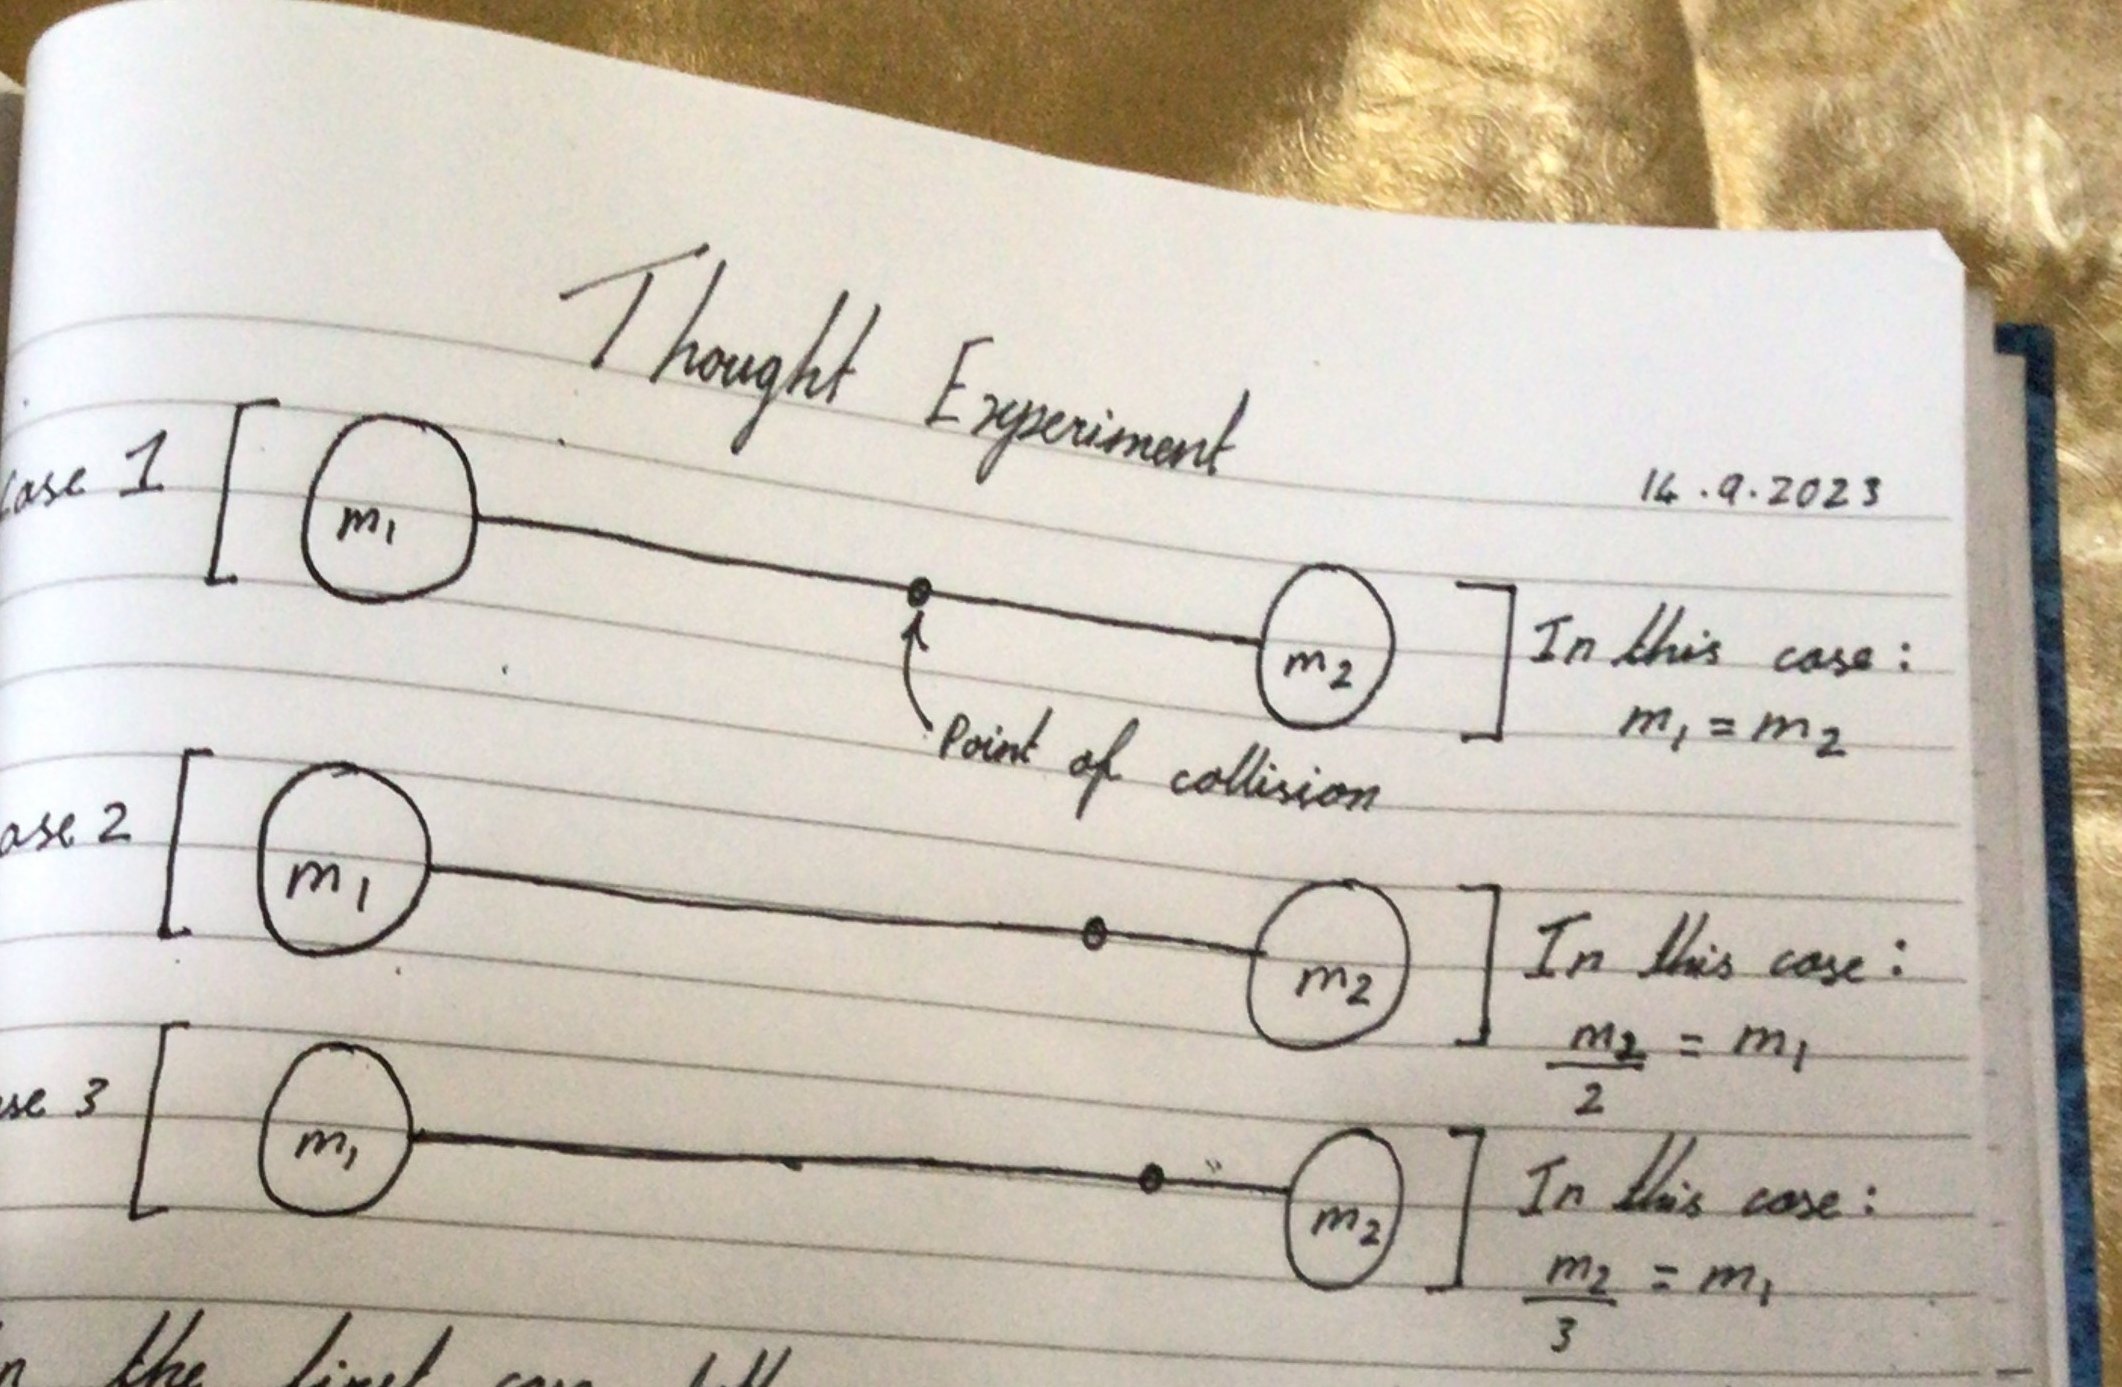 Thought Experiment
14.9.2023
case 1
m₁
m₂
In this case:
m₁ = m₂
Point of collision
ase 2
m₁
m₂
In this case:
m₂/2 = m₁
se 3
m₁
m₂
In this case:
m₂/3 = m₁
n the first case